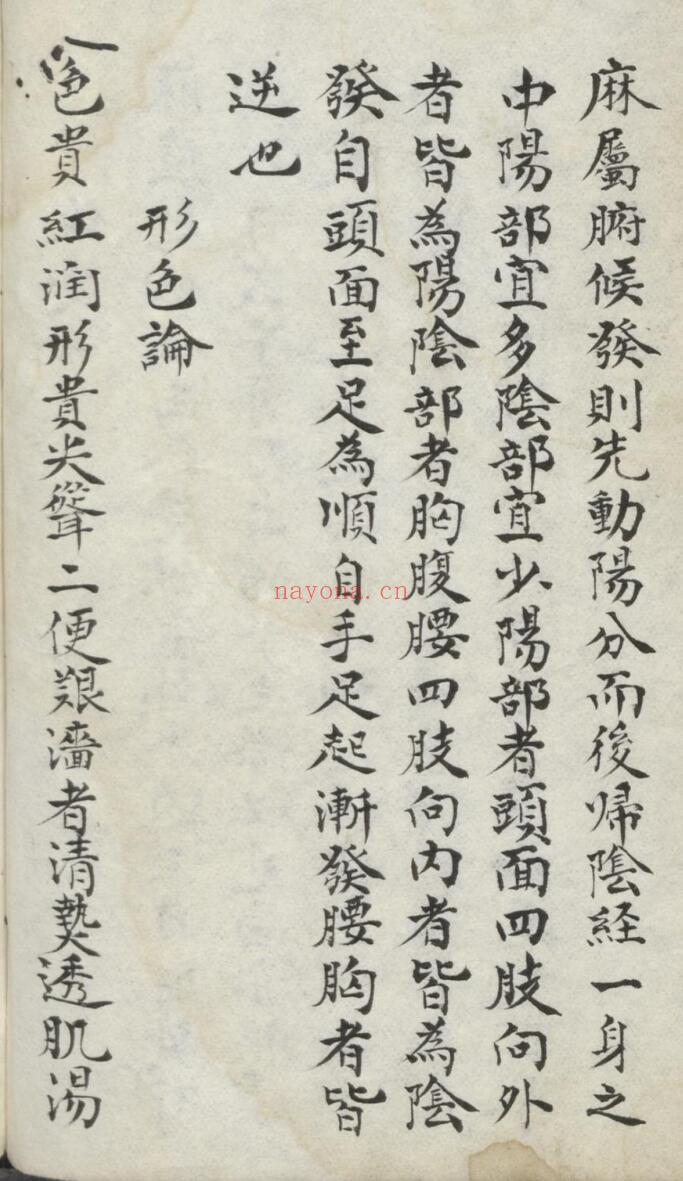 麻屬腑候發則先動陽分而後帰陰経一身之
中陽部宜多陰部宜少陽部者頭面四肢向外
者皆為陽陰部者胸腹腰四肢向内者皆為陰
發自頭面至足為順自手足起漸發腰胸者皆
逆也
形色論
色貴紅潤形貴尖聳二便艱濇者清熱透肌湯
nayona.cn